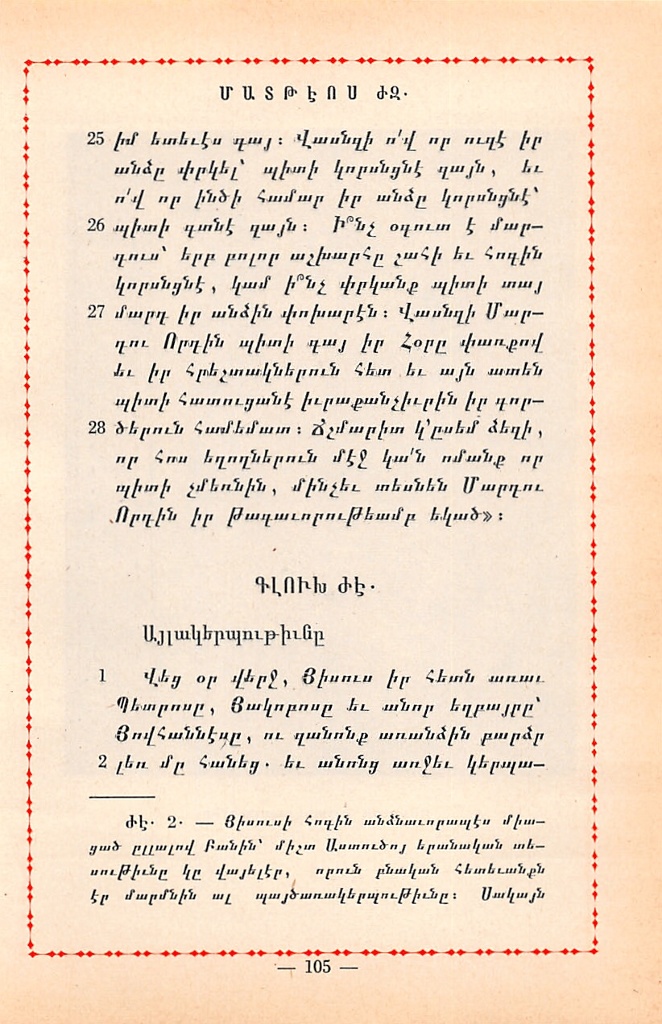 ՄԱՏԹԷՈՍ ԺԶ.
25 իմ ետեւէս գայ։ Վասնզի ո՛վ որ ուզէ իր
անձը փրկել՝ պիտի կորսնցնէ զայն, եւ
ո՛վ որ ինծի համար իր անձը կորսնցնէ՝
26 պիտի գտնէ զայն։ Ի՞նչ օգուտ է մար–
դուս՝ երբ բոլոր աշխարհը շահի եւ հոգին
կորսնցնէ, կամ ի՞նչ փրկանք պիտի տայ
27 մարդ իր անձին փոխարէն։ Վասնզի Մար–
դու Որդին պիտի գայ իր Հօրը փառքով
եւ իր հրեշտակներուն հետ եւ այն ատեն
պիտի հատուցանէ իւրաքանչիւրին իր գոր–
28 ծերուն համեմատ։ Ճշմարիտ կ՚ըսեմ ձեզի,
որ հոս եղողներուն մէջ կա՛ն ոմանք որ
պիտի չմեռնին, մինչեւ տեսնեն Մարդու
Որդին իր թագաւորութեամբ եկած»։
ԳԼՈՒԽ ԺԷ.
Այլակերպութիւնը
1 Վեց օր վերջ, Յիսուս իր հետն առաւ
Պետրոսը, Յակոբոսը եւ անոր եղբայրը՝
Յովհաննէսը, ու զանոնք առանձին բարձր
2 լեռ մը հանեց. եւ անոնց առջեւ կերպա–
ԺԷ. 2. — Յիսուսի հոգին անձնաւորապէս միա–
ցած ըլլալով Բանին՝ միշտ Աստուծոյ երանական տե–
սութիւնը կը վայելէր, որուն բնական հետեւանքն
էր մարմնին ալ պայծառակերպութիւնը։ Սակայն
— 105 —